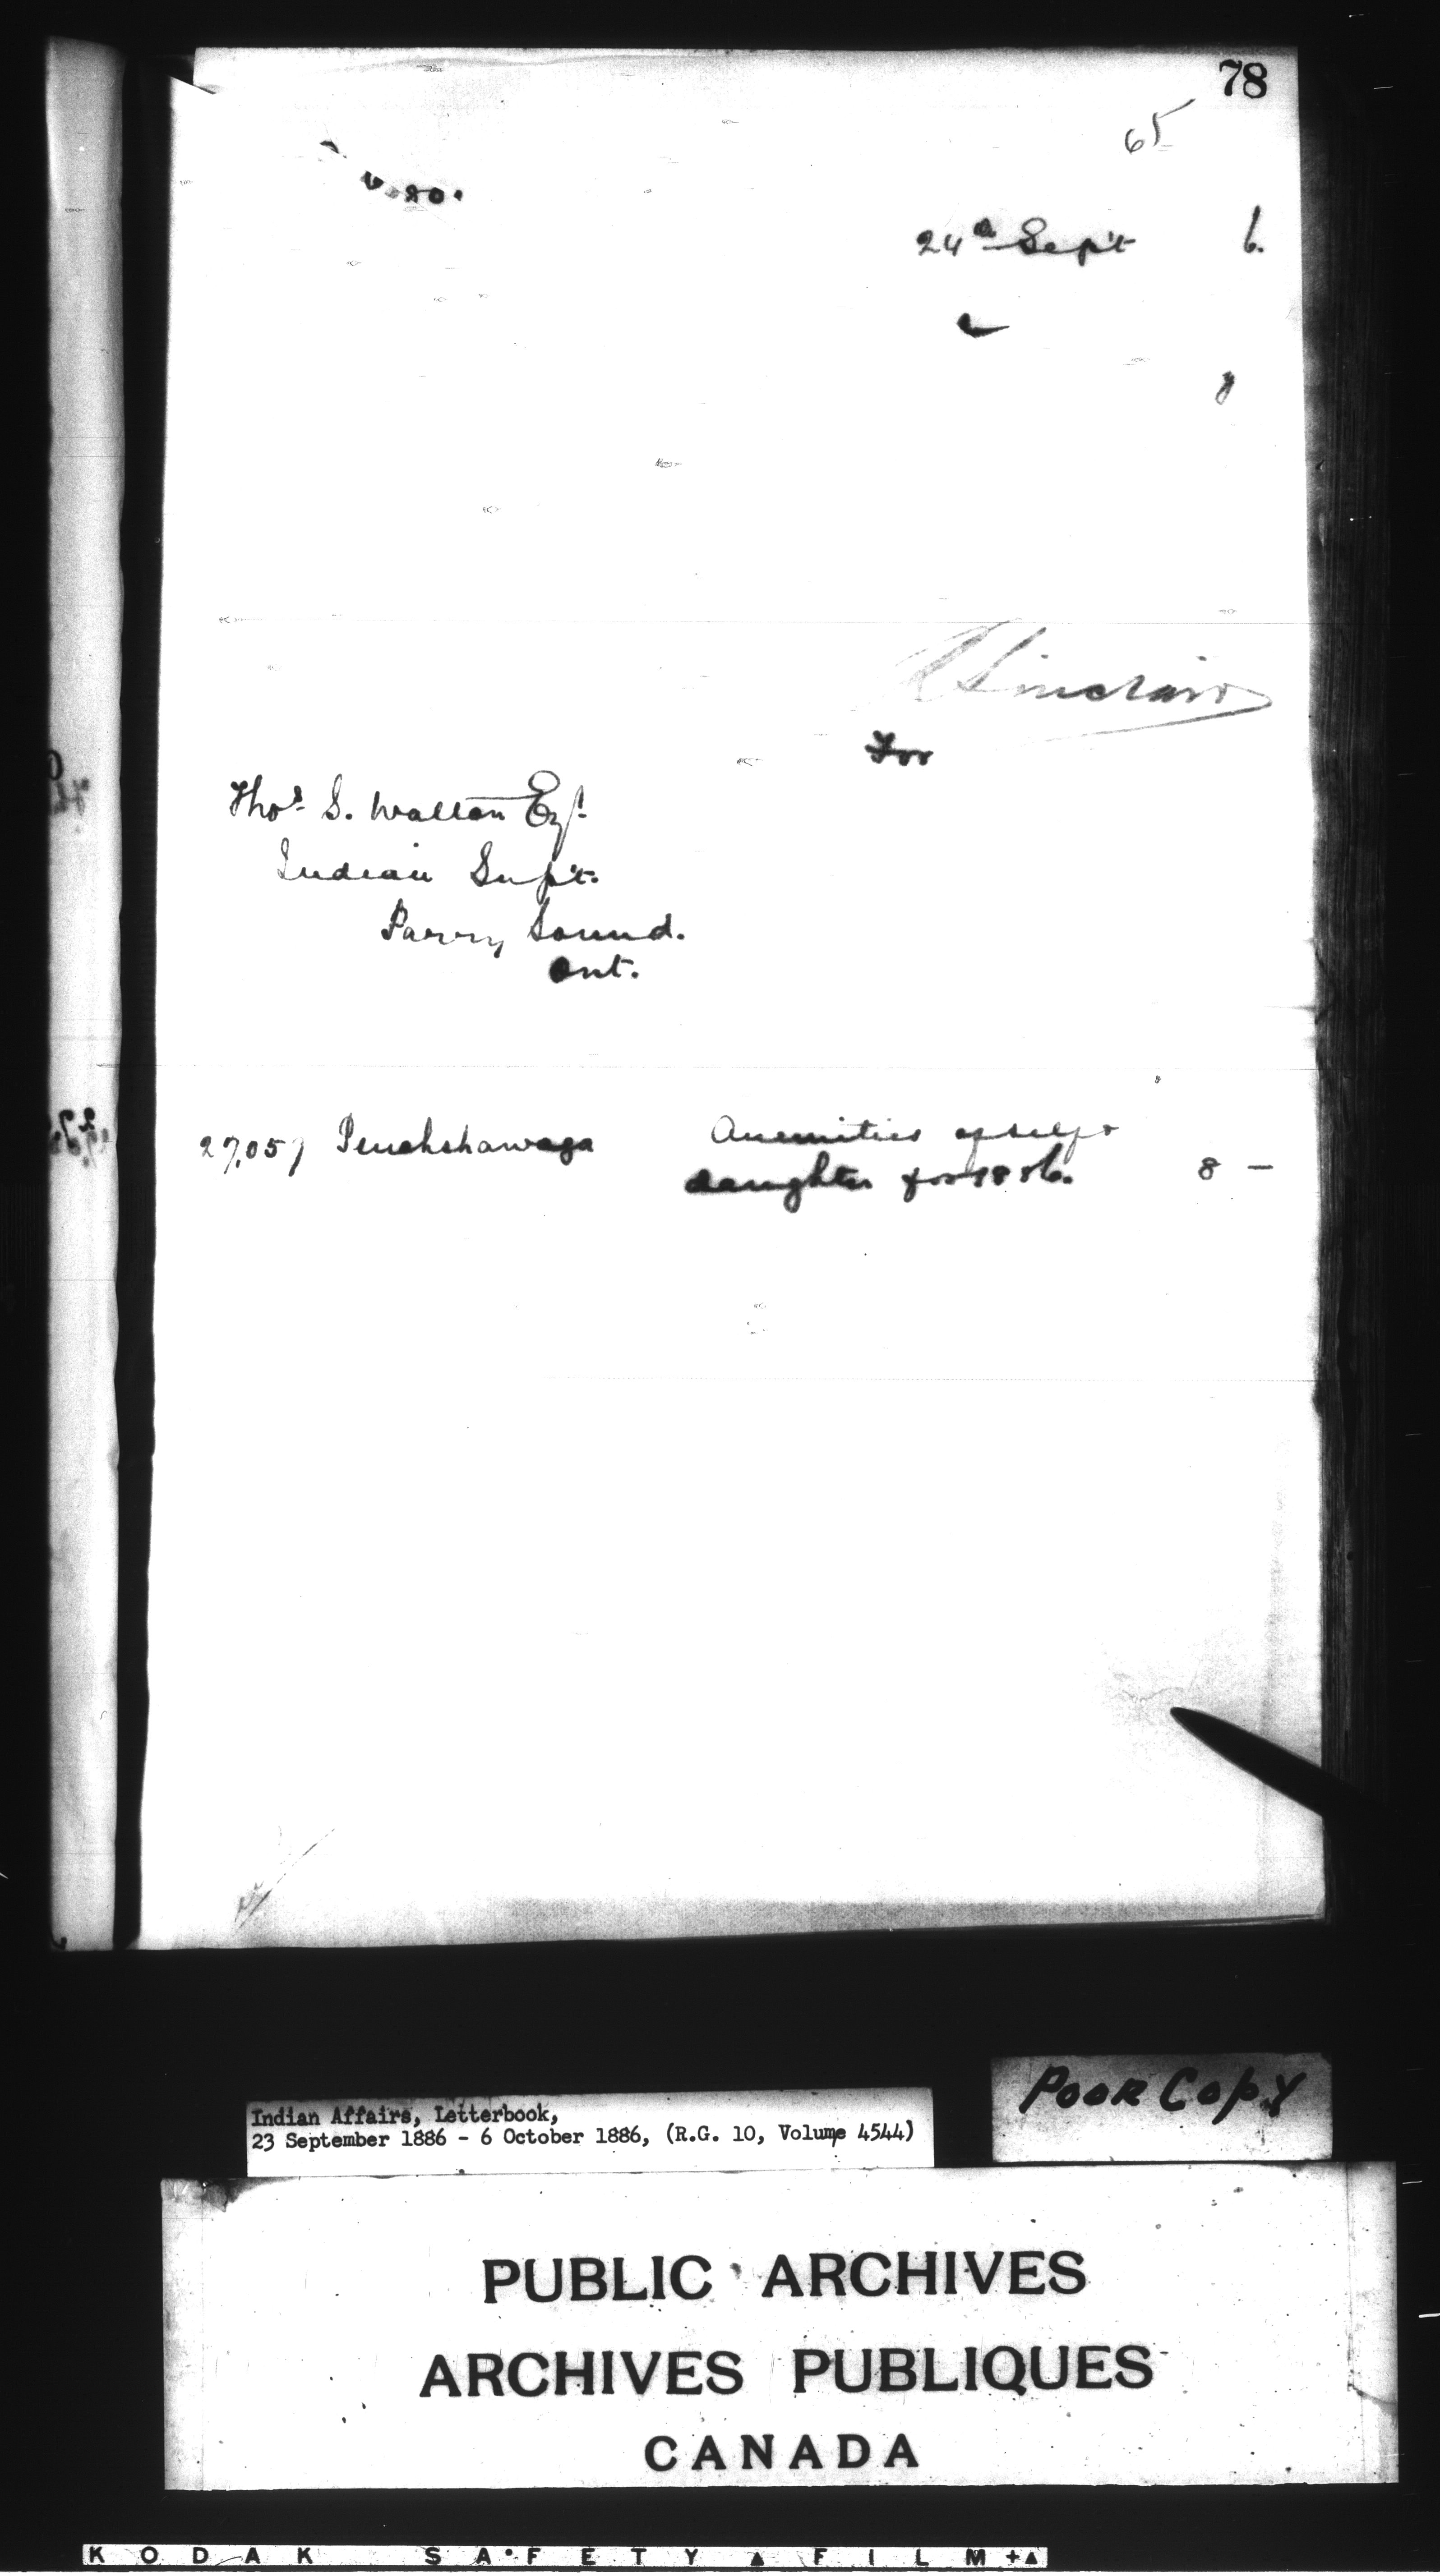 78
65
24th Sept 6.
8
R Sinclair
For
Thos. S. Walton Esq.
Indian Supt.
Parry Sound.
Ont.
27,057 Penahshawaga Annuities of self &
daughter for 1886. 8 —
Poor Copy
Indian Affairs, Letterbook,
23 September 1886 - 6 October 1886, (R.G. 10, Volume 4544)
PUBLIC ARCHIVES
ARCHIVES PUBLIQUES
CANADA
KODAK SAFETY FILM